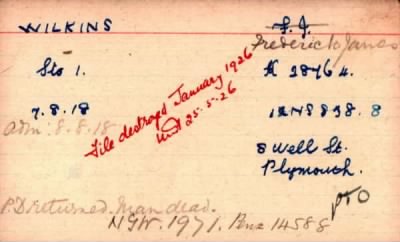 WILKINS F. J.
Frederick James
Sto 1. K 28764.
7.8.18 12NS838.8
adm: 8.8.18
File destroyed January 1926
25.5.26
8 Well St.
Plymouth.
PTO
P.D. returned. Man dead.
N.G.W. 1971. Pens 14588